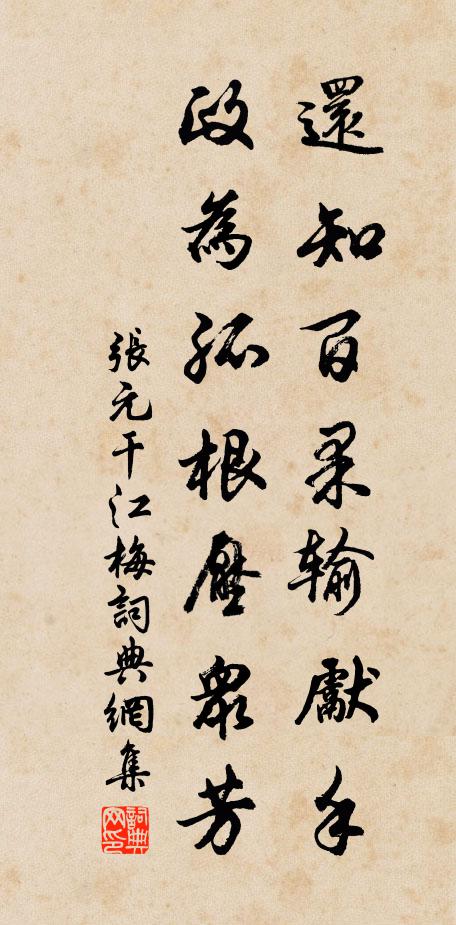 還知百果輸獻手
政為孤根壓眾芳
張元干江梅詞典網集
詞典网印